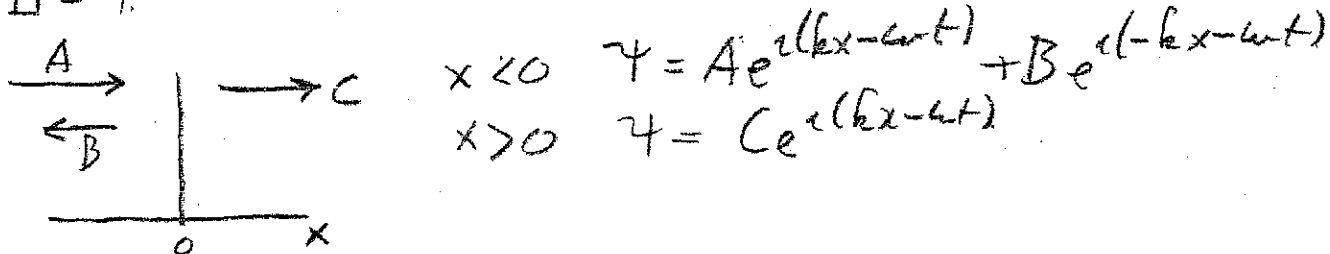 A
B
C
x<0 Ψ = Ae^{i(kx-ωt)} + Be^{i(-kx-ωt)}
x>0 Ψ = Ce^{i(kx-ωt)}
0
x